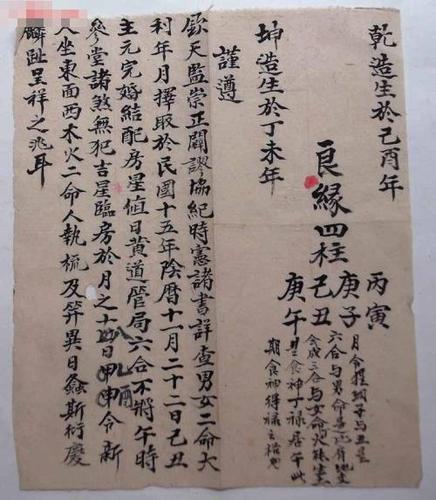 乾造生於己酉年
良緣四柱
丙寅
庚子
己丑
庚午
月令提綱子與丑是
六合與男命是六合地支
會成三合與女命火旺坐
星食神丁祿居午此
期食神得祿之格也
坤造生於丁未年
謹遵
欽天監崇正闢謬協紀時憲諸書詳查男女二命大
利年月擇取於民國十五年陰曆十一月二十二日己丑
主元完婚結配房星值日黃道管局六合不將午時
參堂諸煞無犯吉星臨房於月之十八日申酉令新
人坐東面西木火二命人執梳及笄異日螽斯衍慶
麟趾呈祥之兆耳